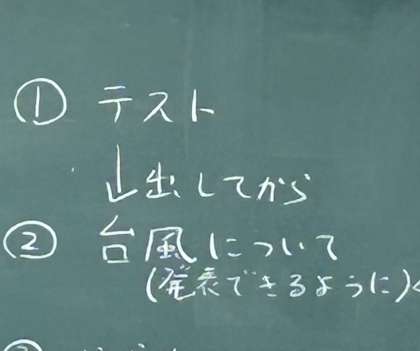 ① テスト
↓出してから
② 台風について
(発表できるように)